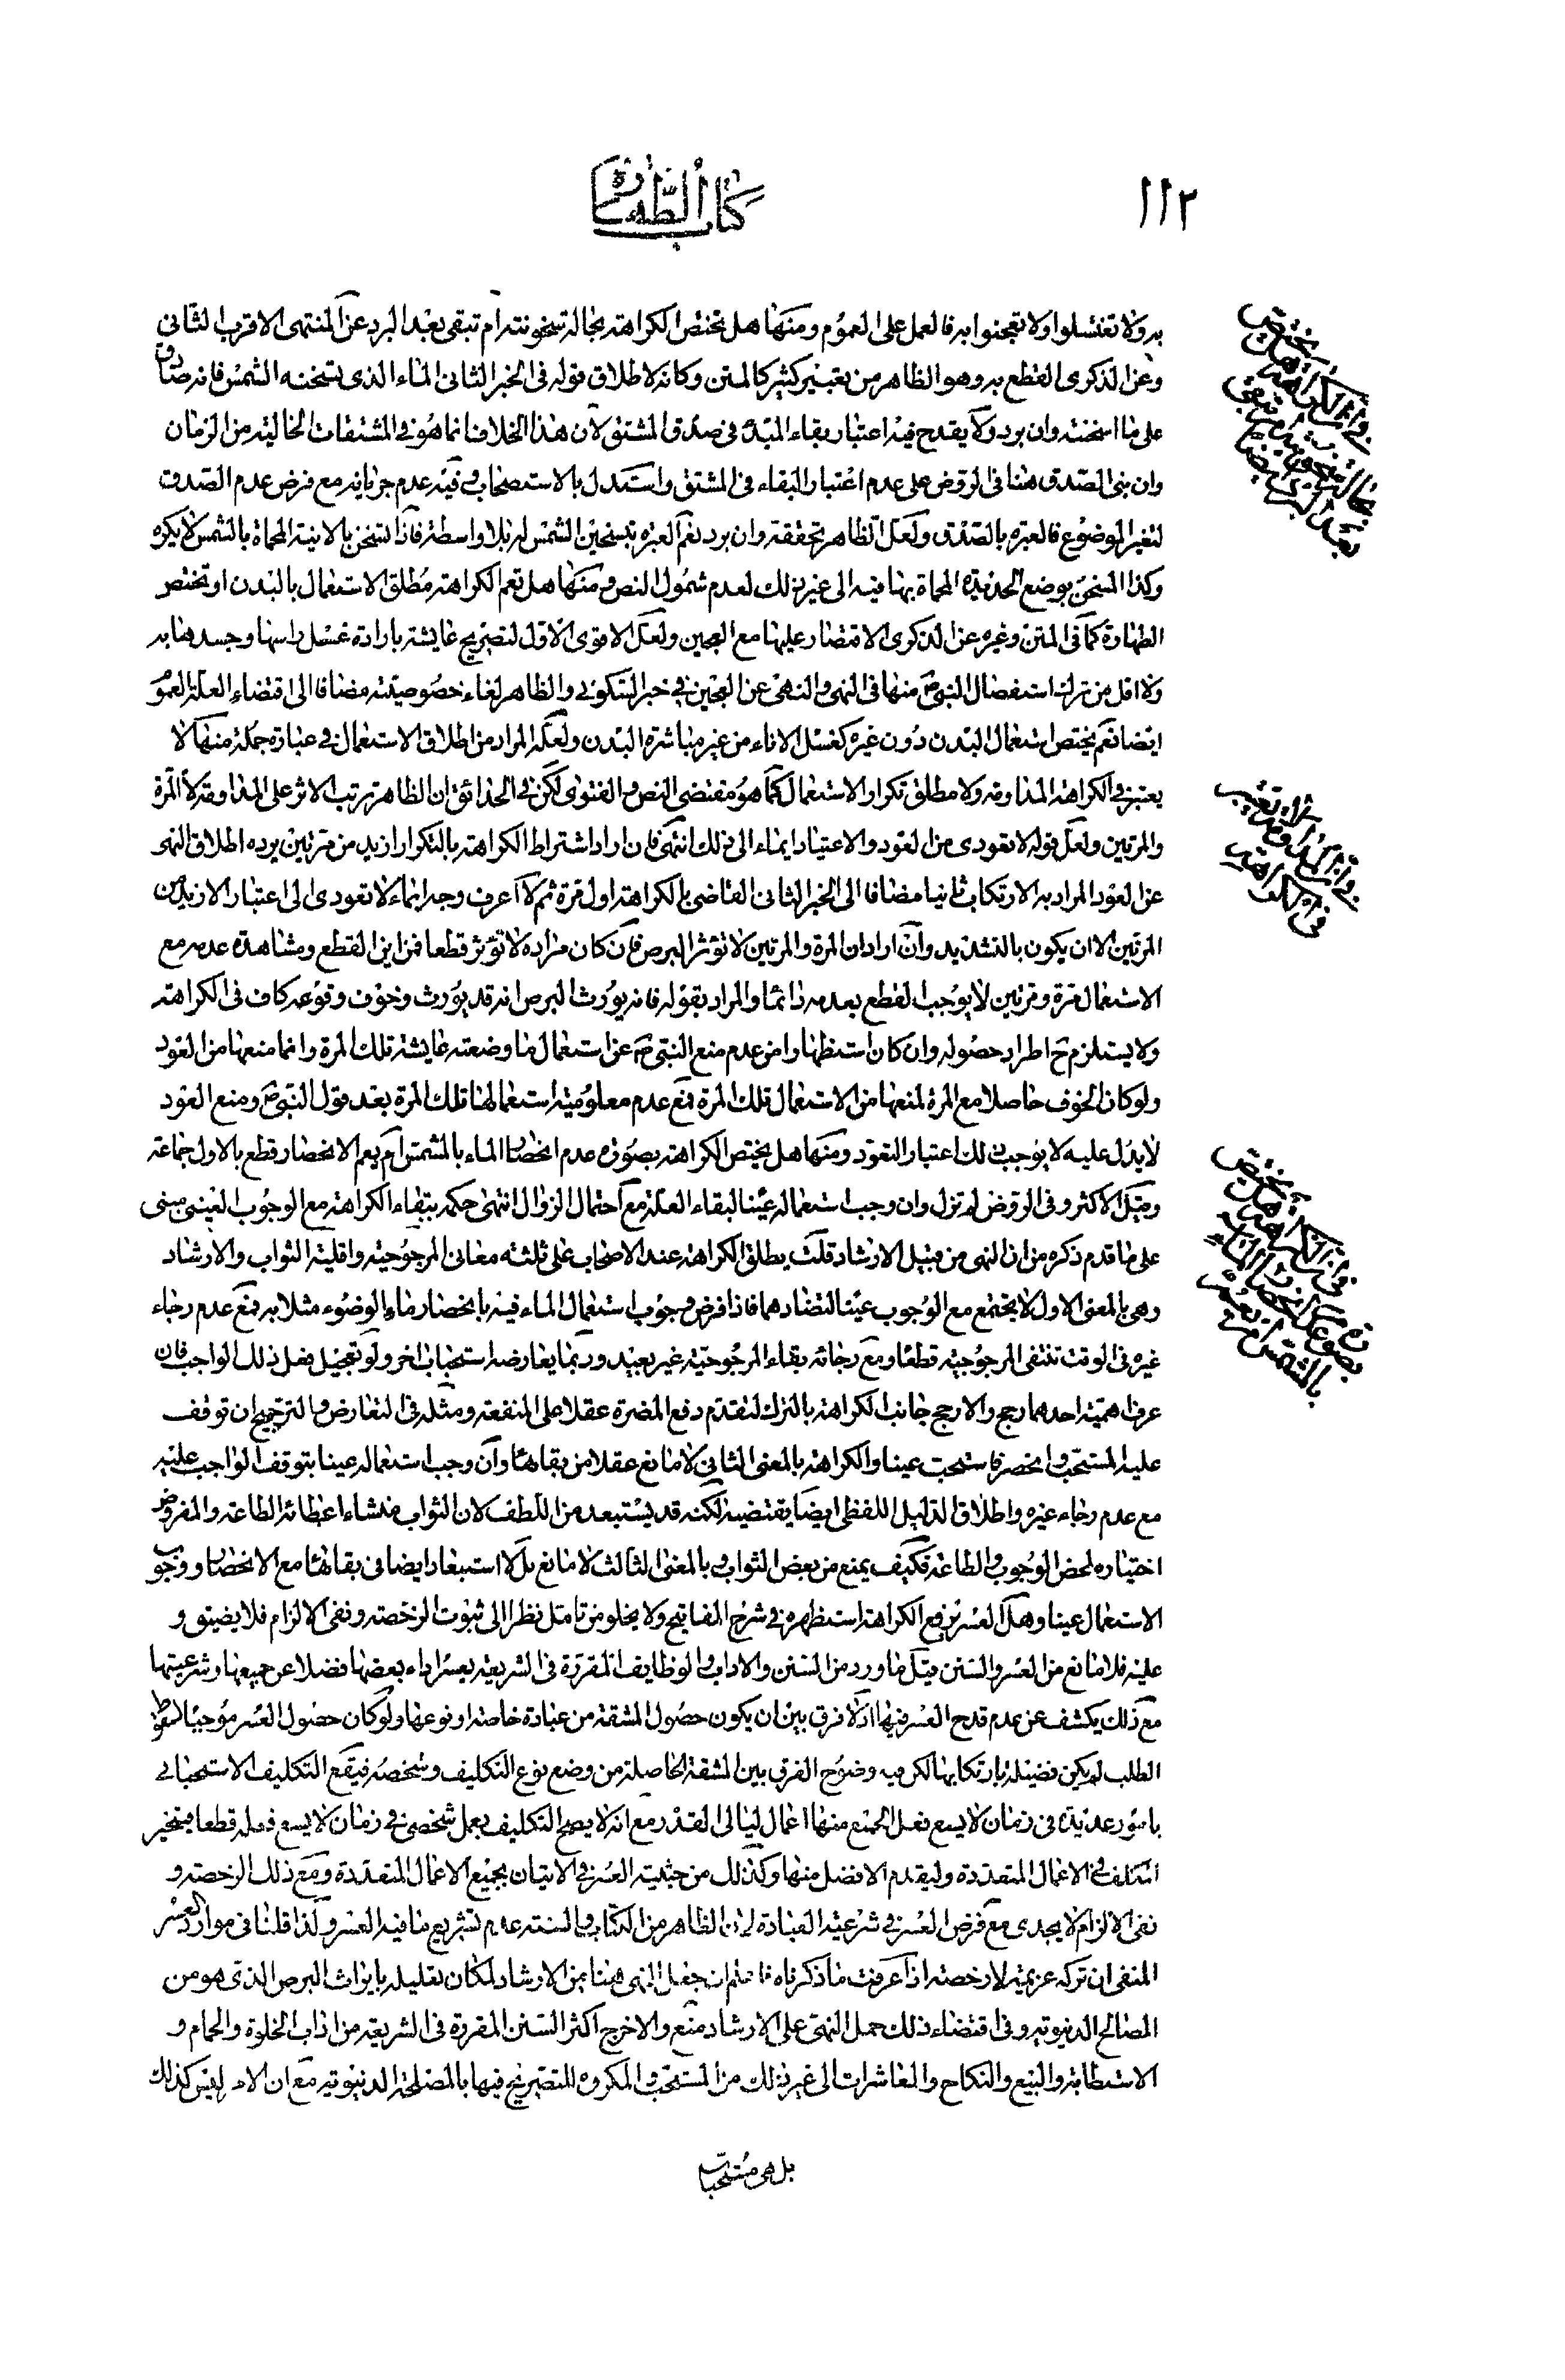 ١١٢
كتاب الطهارة
به ولا تغتسلوا ولا تعجنوا به فالعمل على العموم ومنها هل تختص الكراهة بحالة سخونته ام تبقى بعد البرد عن المنتهى الاقرب الثانى
وعن الذكرى القطع به وهو الظاهر من تعبير كثير كالمتن وكانه لاطلاق قوله فى الخبر الثانى الماء الذى تسخنه الشمس فانه صادق
على ما اسخنته وان برد ولا يقدح فيه اعتبار بقاء المبدء فى صدق المشتق لان هذا الخلاف انما هو فى المشتقات الخالية من الزمان
وان بنى الصدق هنا فى الروض على عدم اعتبار البقاء فى المشتق واستدل بالاستصحاب وفيه عدم جريانه مع فرض عدم الصدق
لتغير الموضوع فالعبرة بالصدق ولعل الظاهر تحققه وان برد نعم العبرة بتسخين الشمس له بلا واسطة فاذا تسخن بالانية المحماة بالشمس لا يكره
وكذا المسخن بوضع الحديدة المحماة بها فيه الى غير ذلك لعدم شمول النص ومنها هل تعم الكراهة مطلق الاستعمال بالبدن او تختص
الطهارة كما فى المتن وغيره عن الذكرى الاقتصار عليها مع العجين ولعل الاقوى الاول لتصريح عايشة بارادة غسل راسها وجسدها به
ولا اقل من ترك استفصال النبى ص منها فى النهى والنهى عن العجين فى خبر السكونى والظاهر لغاء خصوصيته مضافا الى اقتضاء العلة العموم
ايضا نعم يختص استعمال البدن دون غيره كغسل الاناء من غير مباشرة البدن ولعله المراد من اطلاق الاستعمال فى عبارة جملة منها لا
يعتبر فى الكراهة المداومة ولا مطلق تكرار الاستعمال كما هو مقتضى النص والفتوى لكن فى الحدائق ان الظاهر ترتب الاثر على المداومة لا المرة
والمرتين ولعل قوله لا تعودى من العود والاعتياد ايماء الى ذلك انتهى فان اراد اشتراط الكراهة بالتكرار ازيد من مرتين يرده اطلاق النهى
عن العود المراد به الارتكاب ثانيا مضافا الى الخبر الثانى القاضى بالكراهة اول مرة ثم لا اعرف وجه ايماء لا تعودى الى اعتبار الازيد من
المرتين الا ان يكون بالتشديد وان اراد ان المرة والمرتين لا تؤثر البرص فان كان مراده لا تؤثر قطعا فمن اين القطع ومشاهدة عدمه مع
الاستعمال مرة ومرتين لا يوجب القطع بعدمه دائما والمراد بقوله فانه يورث البرص انه قد يورث وخوف وقوعه كاف فى الكراهة
ولا يستلزم ح اطراد حصوله وان كان استظهاره من عدم منع النبى ص عن استعمال ما وضعته عايشة تلك المرة وانما منعها من العود
ولو كان الخوف حاصلا مع المرة لمنعها من الاستعمال تلك المرة فمع عدم معلومية استعمالها تلك المرة بعد قول النبى ص ومنع العود
لا يدل عليه لا يوجب ذلك اعتبار التعود ومنها هل يختص الكراهة بصورة عدم انحصار الماء بالمشمس ام يعم الانحصار قطع بالاول جماعة
وقيل الاكثر وفى الروض لم تزل وان وجب استعماله عينا لبقاء العلة مع احتمال الزوال انتهى حكمه ببقاء الكراهة مع الوجوب العينى مبنى
على ما قدم ذكره من ان النهى من قبيل الارشاد قلت يطلق الكراهة عند الاصحاب على ثلثه معانى المرجوحية واقلية الثواب والارشاد
وهى بالمعنى الاول لا يجتمع مع الوجوب عينا لتضادهما فاذا فرض وجوب استعمال الماء فيه بانحصار ماء الوضوء مثلا به فمع عدم رجاء
غيره فى الوقت تنتفى المرجوحية قطعا ومع رجائه بقاء المرجوحية غير بعيد وربما يعارضه استحباب اخر ولو تعجيل فعل ذلك الواجب فان
عرف اهمية احدهما رجح والا رجح جانب الكراهة بالترك لتقدم دفع المضرة عقلا على المنفعة ومثله فى التعارض والترجيح ان توقف
عليه المستحب وانحصر فاستحب عينا والكراهة بالمعنى الثانى لا مانع عقلا من بقائها وان وجب استعماله عينا بتوقف الواجب عليه
مع عدم رجاء غيره واطلاق الدليل اللفظى ايضا يقتضيه لكنه قد يستبعد من اللطف لان الثواب منشاء اعطائه الطاعة والمفروض
اختياره لمحض الوجوب والطاعة فكيف يمنع من بعض الثواب وبالمعنى الثالث لا مانع بل لا استبعاد ايضا فى بقائها مع الانحصار ووجوب
الاستعمال عينا وهل العسر يرفع الكراهة استظهره فى شرح المفاتيح ولا يخلو من تامل نظرا الى ثبوت الرخصة ونفى الالزام فلا يضيق و
عليه فلا مانع من العسر والسنن قيل ما ورد من السنن والاداب والوظايف المقررة فى الشريعة يعسر اداء بعضها فضلا عن جميعها وشرعيتها
مع ذلك يكشف عن عدم قدح العسر فيها اذ لا فرق بين ان يكون حصول المشقة من عبادة خاصة او نوعها ولو كان حصول العسر موجبا لسقوط
الطلب لم يكن فضيلة بارتكابها لكن فيه وضوح الفرق بين المشقة الحاصلة من وضع نوع التكليف وشخصه فيقع التكليف الاستحبابى
بامور عديدة فى زمان لا يسع فعل الجميع منها اعمال ليالى القدر مع انه لا يصح التكليف بعمل شخصى فى زمان لا يسع فعله قطعا فيتخير
المكلف فى الاعمال المتعددة وليقدم الافضل منها وكذلك من حيثية العسر فى الاتيان بجميع الاعمال المتعددة ومع ذلك الرخصة و
نفى الالزام لا يجدى مع فرض العسر فى شرعية العبادة لان الظاهر من الكتاب والسنة عدم تشريع ما فيه العسر ولذا قلنا فى موارد العسر
المنفى ان تركه عزيمة لا رخصة اذا عرفت ما ذكرناه فاعلم ان جعل النهى هنا من الارشاد لمكان تعليله بايراث البرص الذى هو من
المصالح الدنيوية وفى اقتضاء ذلك حمل النهى على الارشاد منع والا خرج اكثر السنن المقررة فى الشريعة من اداب الخلوة والحمام و
الاستطابة والبيع والنكاح والمعاشرات الى غير ذلك من المستحب والمكروه للتصريح فيها بالمصلحة الدنيوية مع ان الامر ليس كذلك
بل هى مستحبات
فى ان الكراهة هل تختص
بحال تسخينه ام تبقى
بعد البرد ايضا
فى انه لا يعتبر
المداومة
فى الكراهة
فى ان الكراهة هل تختص
بصورة عدم انحصار الماء
بالمشمس ام يعم